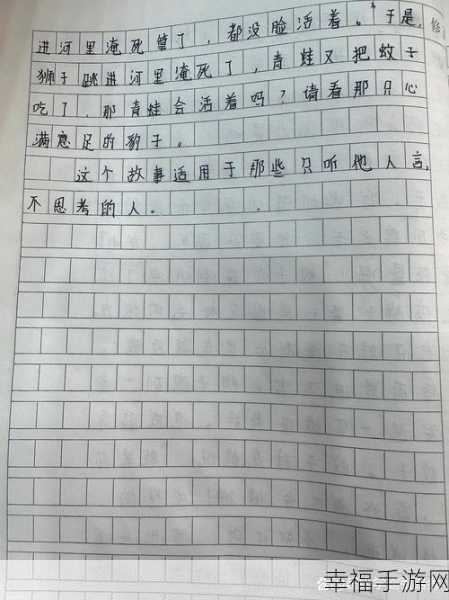 进河里淹死算了，都没脸活着。"于是，
狮子跳进河里淹死了，青蛙又把蚊子
吃了，那青蛙会活着吗？请看那只心
满意足的豹子。
这个故事适用于那些只听他人言，
不思考的人。
幸福手游网